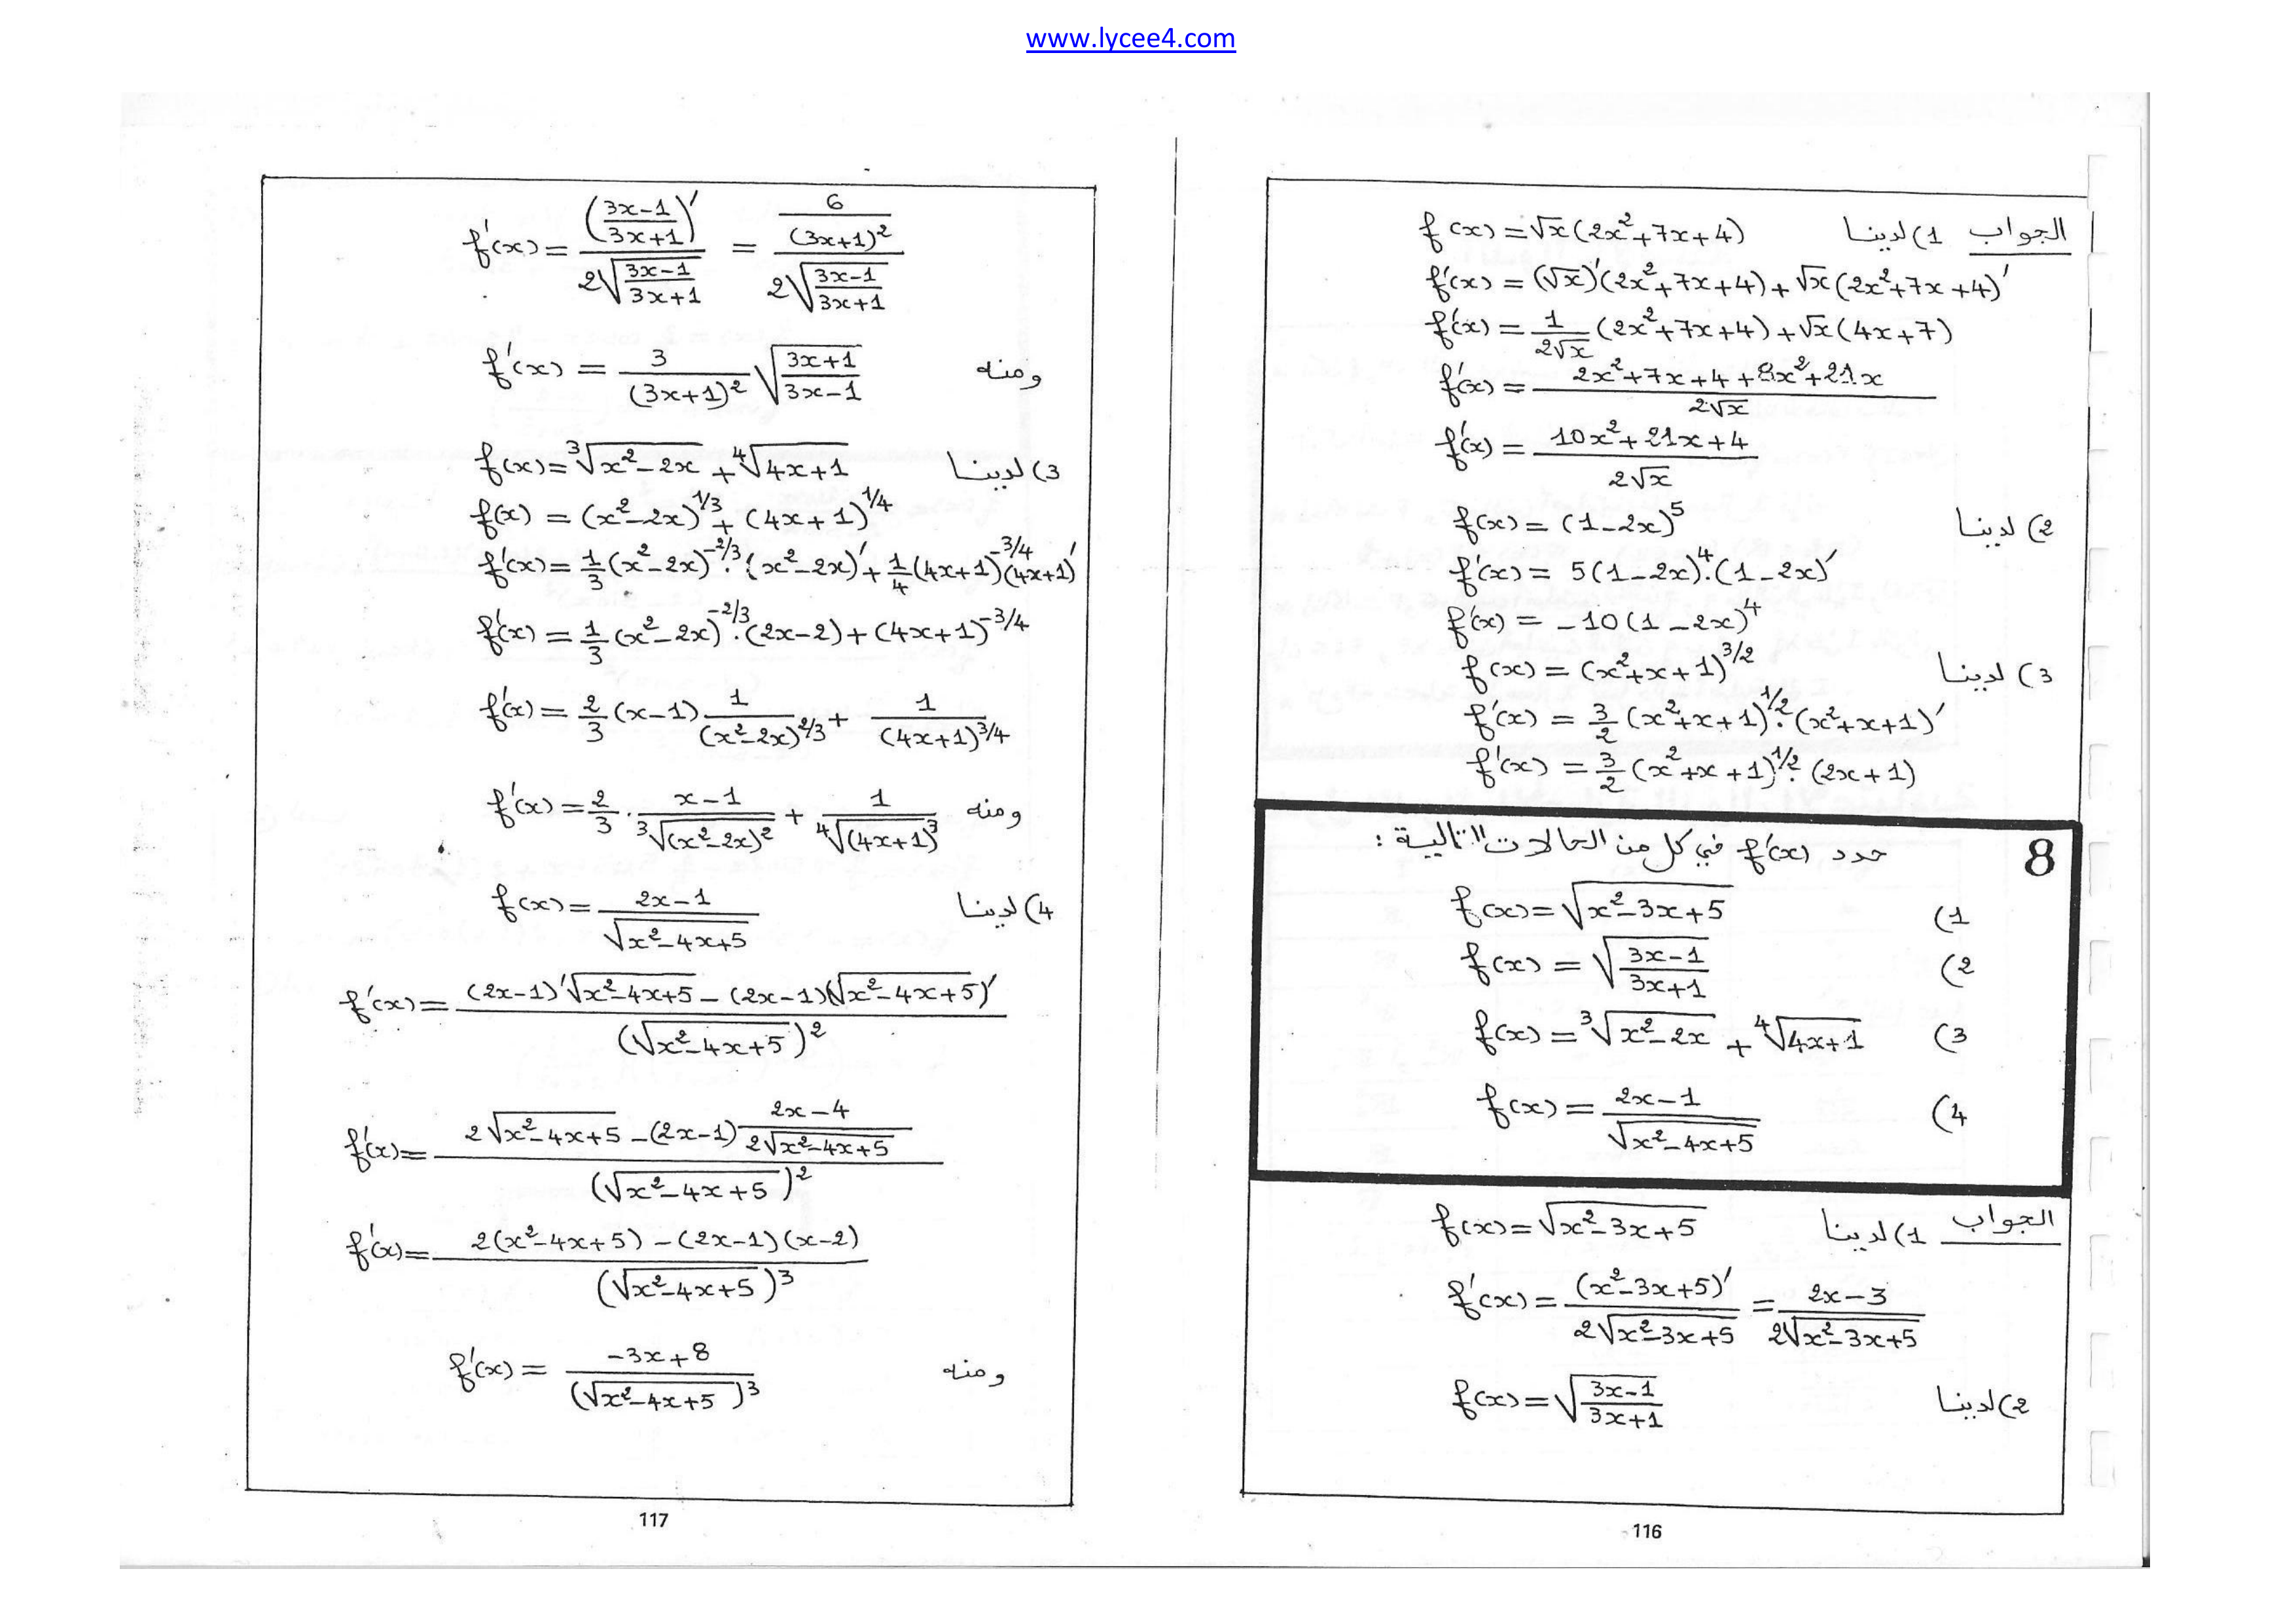 www.lycee4.com
الجواب 1) لدينا f(x) = √x(2x²+7x+4)
f'(x) = (√x)'(2x²+7x+4) + √x(2x²+7x+4)'
f'(x) = 1/(2√x) (2x²+7x+4) + √x(4x+7)
f'(x) = (2x²+7x+4+8x²+21x)/(2√x)
f'(x) = (10x²+21x+4)/(2√x)
2) لدينا f(x) = (1-2x)⁵
f'(x) = 5(1-2x)⁴.(1-2x)'
f'(x) = -10(1-2x)⁴
3) لدينا f(x) = (x²+x+1)^(3/2)
f'(x) = 3/2 (x²+x+1)^(1/2).(x²+x+1)'
f'(x) = 3/2 (x²+x+1)^(1/2).(2x+1)
8 حدد f'(x) في كل من الحالات التالية :
1) f(x) = √(x²-3x+5)
2) f(x) = √((3x-1)/(3x+1))
3) f(x) = ³√(x²-2x) + ⁴√(4x+1)
4) f(x) = (2x-1)/√(x²-4x+5)
الجواب 1) لدينا f(x) = √(x²-3x+5)
f'(x) = (x²-3x+5)'/(2√(x²-3x+5)) = (2x-3)/(2√(x²-3x+5))
2) لدينا f(x) = √((3x-1)/(3x+1))
116
f'(x) = ((3x-1)/(3x+1))'/(2√((3x-1)/(3x+1))) = (6/(3x+1)²)/(2√((3x-1)/(3x+1)))
ومنه f'(x) = 3/(3x+1)² √((3x+1)/(3x-1))
3) لدينا f(x) = ³√(x²-2x) + ⁴√(4x+1)
f(x) = (x²-2x)^(1/3) + (4x+1)^(1/4)
f'(x) = 1/3 (x²-2x)^(-2/3).(x²-2x)' + 1/4 (4x+1)^(-3/4)(4x+1)'
f'(x) = 1/3 (x²-2x)^(-2/3).(2x-2) + (4x+1)^(-3/4)
f'(x) = 2/3 (x-1) 1/(x²-2x)^(2/3) + 1/(4x+1)^(3/4)
ومنه f'(x) = 2/3 . (x-1)/³√((x²-2x)²) + 1/⁴√((4x+1)³)
4) لدينا f(x) = (2x-1)/√(x²-4x+5)
f'(x) = ((2x-1)'√(x²-4x+5) - (2x-1)(√(x²-4x+5))')/(√(x²-4x+5))²
f'(x) = (2√(x²-4x+5) - (2x-1) (2x-4)/(2√(x²-4x+5)))/(√(x²-4x+5))²
f'(x) = (2(x²-4x+5) - (2x-1)(x-2))/(√(x²-4x+5))³
ومنه f'(x) = (-3x+8)/(√(x²-4x+5))³
117